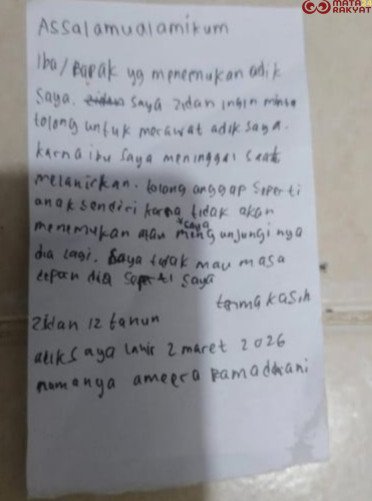 MATA RAKYAT
Assalamualamikum
Iba/Bapak yg menemukan adik
saya. saya zidan ingin minta
tolong untuk merawat adik saya.
karna ibu saya meninggal saat
melahirkan. tolong anggap seperti
anak sendiri karna tidak akan
saya
menemukan atau mengunjungi nya
dia lagi. saya tidak mau masa
depan dia seperti saya
terma kasih
Zidan 12 tahun
adik saya lahir 2 maret 2026
namanya ameera Ramadhani